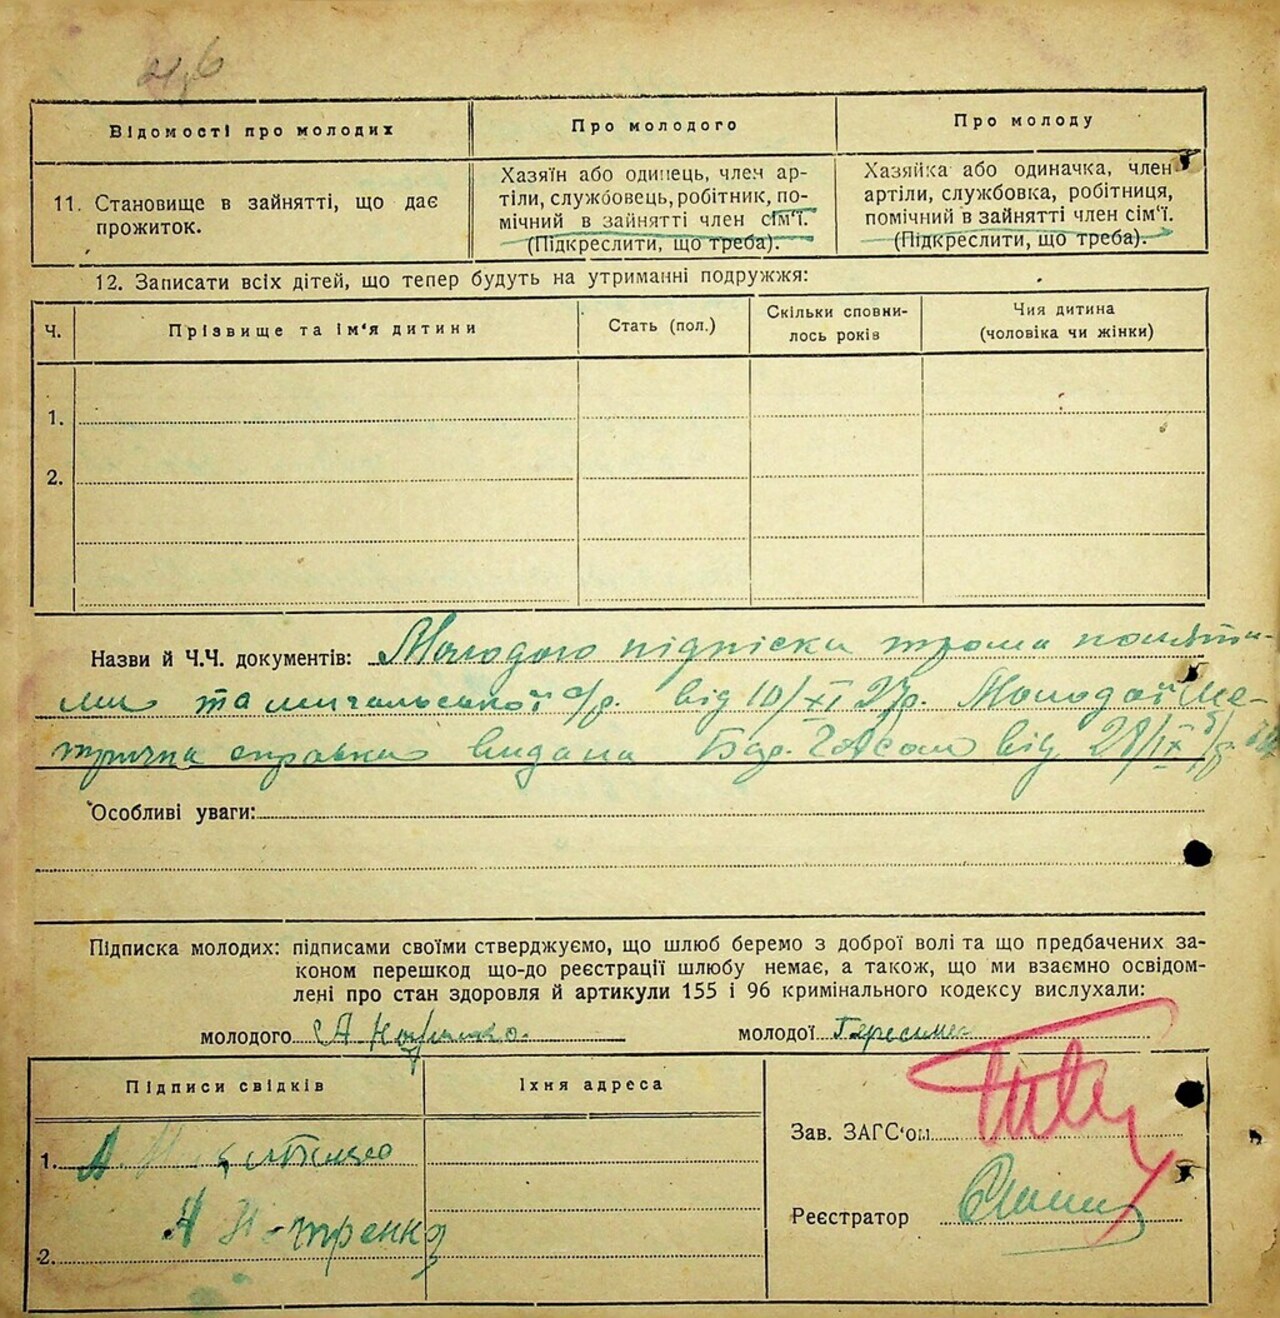 Відомості про молодих
Про молодого
Про молоду
11. Становище в зайнятті, що дає
прожиток.
Хазяїн або одинець, член ар-
тілі, службовець, робітник, по-
мічний в зайнятті член сім'ї.
(Підкреслити, що треба).
Хазяйка або одиначка, член
артілі, службовка, робітниця,
помічний в зайнятті член сім'ї.
(Підкреслити, що треба).
12. Записати всіх дітей, що тепер будуть на утриманні подружжя:
Ч.
Прізвище та ім'я дитини
Стать (пол.)
Скільки сповни-
лось років
Чия дитина
(чоловіка чи жінки)
1.
2.
Назви й Ч.Ч. документів: Молодого підпіски трома
та с/р. від 10/XI 27р. Молодої ме-
трична справка видана від 28/IX
Особливі уваги:
Підписка молодих: підписами своїми стверджуємо, що шлюб беремо з доброї волі та що предбачених за-
коном перешкод що-до реєстрації шлюбу немає, а також, що ми взаємно освідом-
лені про стан здоровля й артикули 155 і 96 кримінального кодексу вислухали:
молодого
молодої
Підписи свідків
Їхня адреса
1.
2.
Зав. ЗАГС'ом
Реєстратор